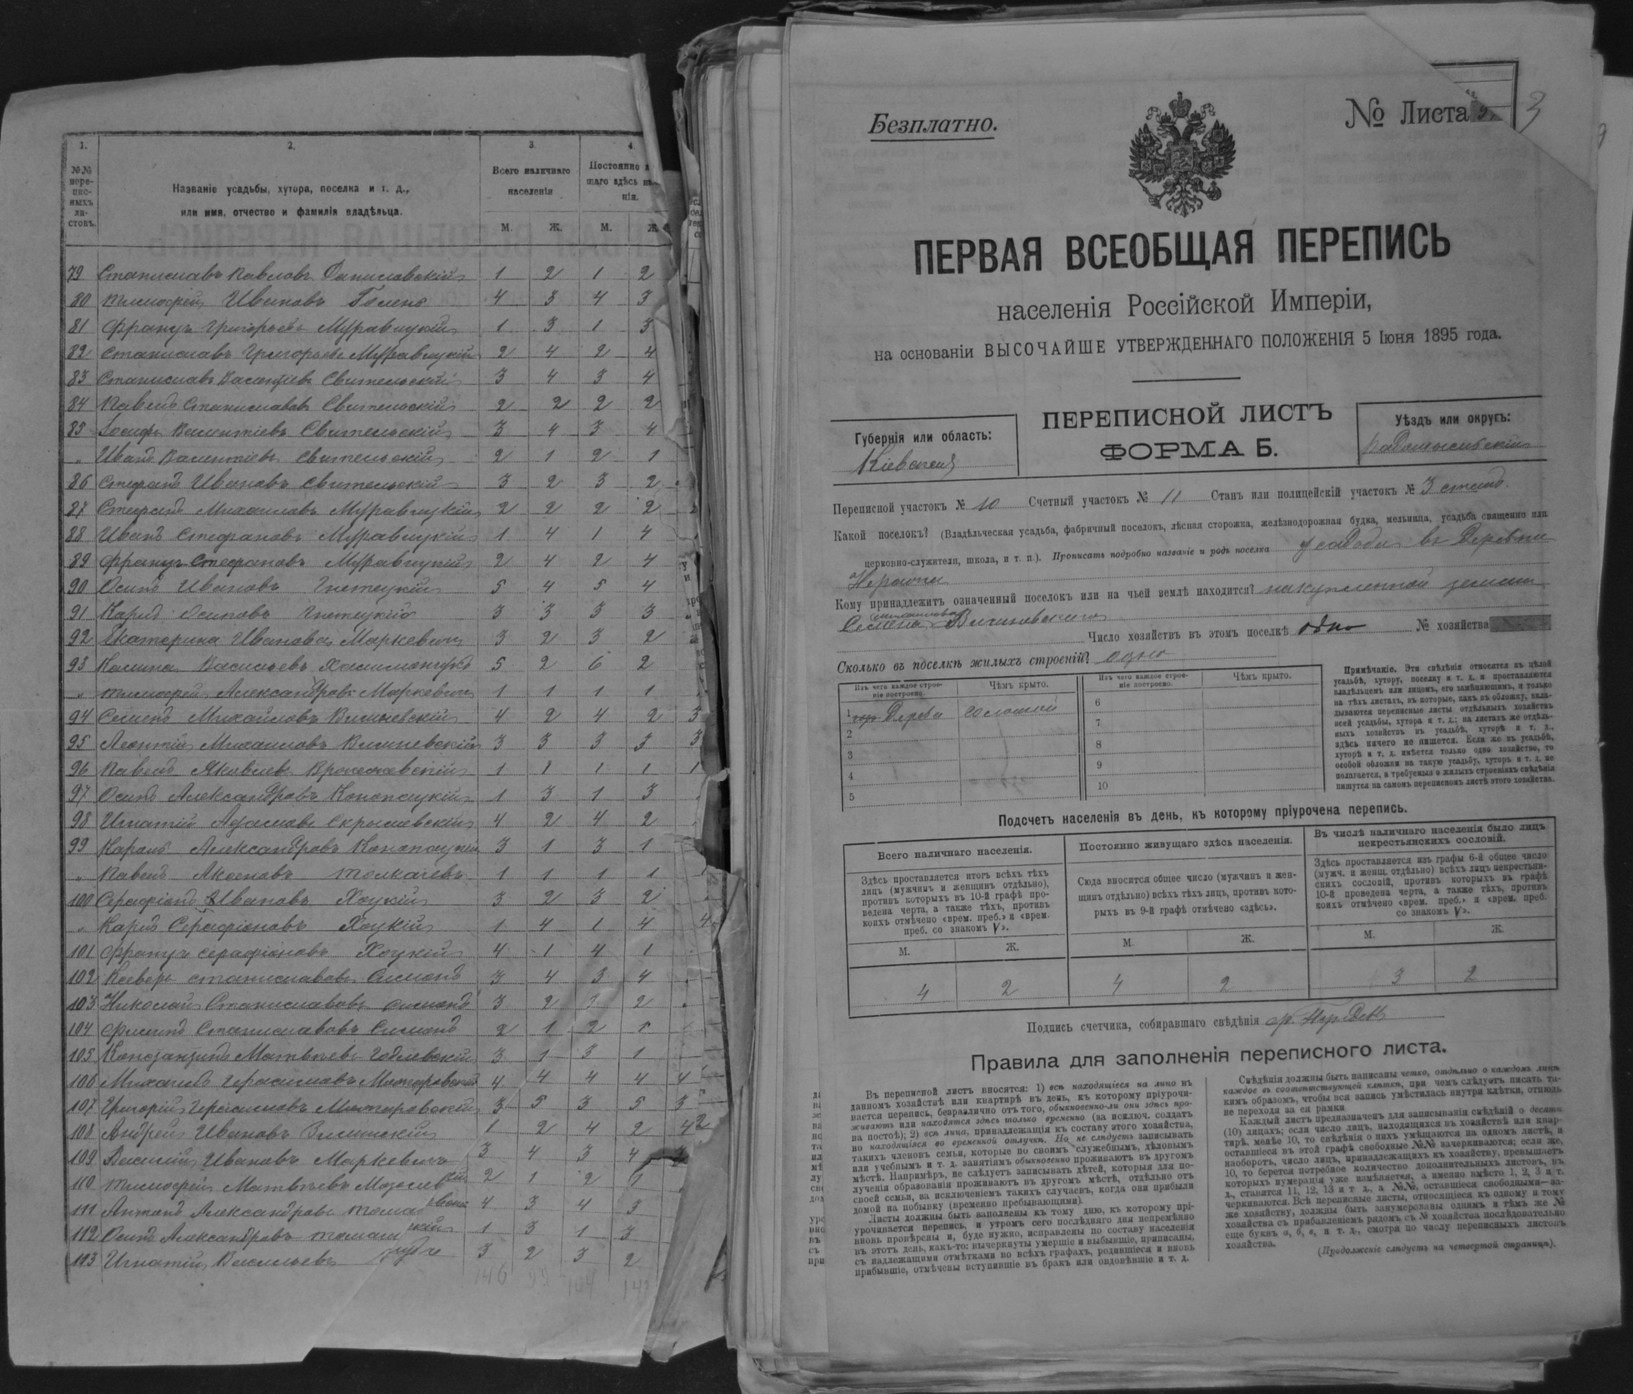 1.
2.
3.
4
№№ пере-
пис-
ныхъ
ли-
стовъ.
Названіе усадьбы, хутора, поселка и т. д.,
или имя, отчество и фамилія владѣльца.
Всего наличнаго
населенія
Постоянно
щаго здѣсь
нія.
М. Ж. М. Ж
79 Станиславъ Павловъ 1 2 1 2
80 Тимофій Ивановъ 4 3 4 3
81 Францъ Григорьевъ Муравицкій 1 3 1 3
82 Станиславъ Григорьевъ Муравицкій 2 4 2 4
83 Станиславъ Валентіевъ Свительскій 3 4 3 4
84 Павелъ Станиславовъ Свительскій 2 2 2 2
85 Іосифъ Валентіевъ Свительскій 3 4 3 4
„ Иванъ Валентіевъ Свительскій 2 1 2 1
86 Стефанъ Ивановъ Свительскій 3 2 3 2
87 Стефанъ Михайловъ Муравицкій 2 2 2 2
88 Иванъ Стефановъ Муравицкій 1 4 1 4
89 Францъ Стефановъ Муравицкій 2 4 2 4
90 Осипъ Ивановъ 5 4 5 4
91 Карлъ Осиповъ 3 3 3 3
92 Екатерина Иванова Маркевичъ 3 2 3 2
93 Васильевъ 5 2 6 2
„ Тимофей Александровъ Маркевичъ 1 1 1 1
94 Семенъ Михайловъ 4 2 4 2 3
95 Леонтій Михайловъ 3 3 3 3 3
96 Павелъ Яковлевъ 1 1 1 1 1
97 Осипъ Александровъ Конопацкій 1 3 1 3
98 Игнатій Адамовъ 4 2 4 2
99 Карлъ Александровъ Конопацкій 3 1 3 1
„ Павелъ Толкачевъ 1 1 1 1
100 Серафіонъ Ивановъ Хоцкій 3 2 3 2
„ Карлъ Серафіоновъ Хоцкій 1 4 1 4 4
101 Францъ Серафіоновъ Хоцкій 4 1 4 1
102 Станиславовъ 3 4 3 4
103 Николай Станиславовъ 3 2 2
104 Станиславовъ 2 1 2 1
105 Матвѣевъ 3 1 3 1
106 Михаилъ Герасимовъ 4 4 4 4 4
107 Григорій Герасимовъ 3 5 3 5 3
108 Андрей Ивановъ 1 2 4 2 4
109 Василій Ивановъ Маркевичъ 3 4 3 4
110 Тимофей Матвѣевъ 2 1 2 1
111 Антонъ Александровъ 4 3 4 3
112 Осипъ Александровъ 1 3 1 3
113 Игнатій Васильевъ 3 2 3 2
Безплатно.
№ Листа 3
ПЕРВАЯ ВСЕОБЩАЯ ПЕРЕПИСЬ
населенія Россійской Имперіи,
на основаніи ВЫСОЧАЙШЕ УТВЕРЖДЕННАГО ПОЛОЖЕНІЯ 5 Іюня 1895 года.
Губернія или область:
Кіевская
ПЕРЕПИСНОЙ ЛИСТЪ
ФОРМА Б.
Уѣздъ или округъ:
Радомысльскій
Переписной участокъ № 10 Счетный участокъ № 11 Станъ или полицейскій участокъ № 3 станъ.
Какой поселокъ? (Владѣльческая усадьба, фабричный поселокъ, лѣсная сторожка, желѣзнодорожная будка, мельница, усадьба священно или
церковно-служителя, школа, и т. п.). Прописать подробно названіе и родъ поселка усадьба въ деревни
Кому принадлежитъ означенный поселокъ или на чьей землѣ находится? на купленной земли
Семена
Число хозяйствъ въ этомъ поселкѣ одно № хозяйства
Сколько въ поселкѣ жилыхъ строеній? одно
Изъ чего каждое строе-
ніе построено.
Чѣмъ крыто.
Изъ чего каждое строе-
ніе построено.
Чѣмъ крыто.
1 Дерева соломой
2
3
4
5
6
7
8
9
10
Примѣчаніе. Эти свѣдѣнія относятся къ цѣлой
усадьбѣ, хутору, поселку и т. д. и проставляются
владѣльцемъ или лицомъ, его замѣняющимъ, и только
на тѣхъ листахъ, въ которые, какъ въ обложку, вкла-
дываются переписные листы отдѣльныхъ хозяйствъ
всей усадьбы, хутора и т. д.; на листахъ же отдѣль-
ныхъ хозяйствъ въ усадьбѣ, хуторѣ и т. д.,
здѣсь ничего не пишется. Если же въ усадьбѣ,
хуторѣ и т. д. имѣется только одно хозяйство, то
особой обложки на такую усадьбу, хуторъ и т. д. не
полагается, и требуемыя о жилыхъ строеніяхъ свѣдѣнія
пишутся на самомъ переписномъ листѣ этого хозяйства.
Подсчетъ населенія въ день, къ которому пріурочена перепись.
Всего наличнаго населенія.
Здѣсь проставляется итогъ всѣхъ тѣхъ
лицъ (мужчинъ и женщинъ отдѣльно),
противъ которыхъ въ 10-й графѣ про-
ведена черта, а также тѣхъ, противъ
коихъ отмѣчено «врем. преб.» и «врем.
преб. со знакомъ V».
Постоянно живущаго здѣсь населенія.
Сюда вносится общее число (мужчинъ и жен-
щинъ отдѣльно) всѣхъ тѣхъ лицъ, противъ кото-
рыхъ въ 9-й графѣ отмѣчено «здѣсь».
Въ числѣ наличнаго населенія было лицъ
некрестьянскихъ сословій.
Здѣсь проставляется изъ графы 6-й общее число
(мужч. и женщ. отдѣльно) всѣхъ лицъ некрестьян-
скихъ сословій, противъ которыхъ въ графѣ
10-й проведена черта, а также тѣхъ, противъ
коихъ отмѣчено «врем. преб.» и «врем. преб.
со знакомъ V».
М. Ж. М. Ж. М. Ж.
4 2 4 2 3 2
Подпись счетчика, собиравшаго свѣдѣнія
Правила для заполненія переписного листа.
Въ переписной листъ вносятся: 1) всѣ находящіеся на лицо въ
данномъ хозяйствѣ или квартирѣ въ день, къ которому пріурочи-
вается перепись, безразлично отъ того, обыкновенно-ли они здѣсь про-
живаютъ или находятся здѣсь только временно (за исключ. солдатъ
на постоѣ); 2) всѣ лица, принадлежащія къ составу этого хозяйства,
но находящіяся во временной отлучкѣ. Но не слѣдуетъ записывать
такихъ членовъ семьи, которые по своимъ служебнымъ, дѣловымъ
или учебнымъ и т. д. занятіямъ обыкновенно проживаютъ въ другомъ
мѣстѣ. Напримѣръ, не слѣдуетъ записывать дѣтей, которыя для по-
лученія образованія проживаютъ въ другомъ мѣстѣ, отдѣльно отъ
своей семьи, за исключеніемъ такихъ случаевъ, когда они прибыли
домой на побывку (временно пребывающими).
Листы должны быть заполнены къ тому дню, къ которому прі-
урочивается перепись, и утромъ сего послѣдняго дня непремѣнно
вновь провѣрены и, буде нужно, исправлены по составу населенія
въ этотъ день, какъ-то: вычеркнуты умершіе и выбывшіе, приписаны,
съ надлежащими отмѣтками во всѣхъ графахъ, родившіеся и вновь
прибывшіе, отмѣчены вступившіе въ бракъ или овдовѣвшіе и т. д.
Свѣдѣнія должны быть написаны четко, отдѣльно о каждомъ лицѣ
каждое въ соотвѣтствующей клѣткѣ, при чемъ слѣдуетъ писать та-
кимъ образомъ, чтобы вся запись умѣстилась внутри клѣтки, отнюдь
не переходя за ея рамки.
Каждый листъ предназначенъ для записыванія свѣдѣній о десяти
(10) лицахъ; если число лицъ, находящихся въ хозяйствѣ или квар-
тирѣ, менѣе 10, то свѣдѣнія о нихъ умѣщаются на одномъ листѣ, и
оставшіеся въ этой графѣ свободные №№ зачеркиваются; если же,
наоборотъ, число лицъ, принадлежащихъ къ хозяйству, превышаетъ
10, то берется потребное количество дополнительныхъ листовъ, въ
которыхъ нумерація уже измѣняется, а именно вмѣсто 1, 2, 3 и т.
д., ставятся 11, 12, 13 и т. д., а №№, оставшіеся свободными—за-
черкиваются. Всѣ переписные листы, относящіеся къ одному и тому
же хозяйству, должны быть занумерованы однимъ и тѣмъ же №
хозяйства съ прибавленіемъ рядомъ съ № хозяйства послѣдовательно
еще буквъ а, б, в, и т. д., смотря по числу переписныхъ листовъ
хозяйства.
(Продолженіе слѣдуетъ на четвертой страницѣ).